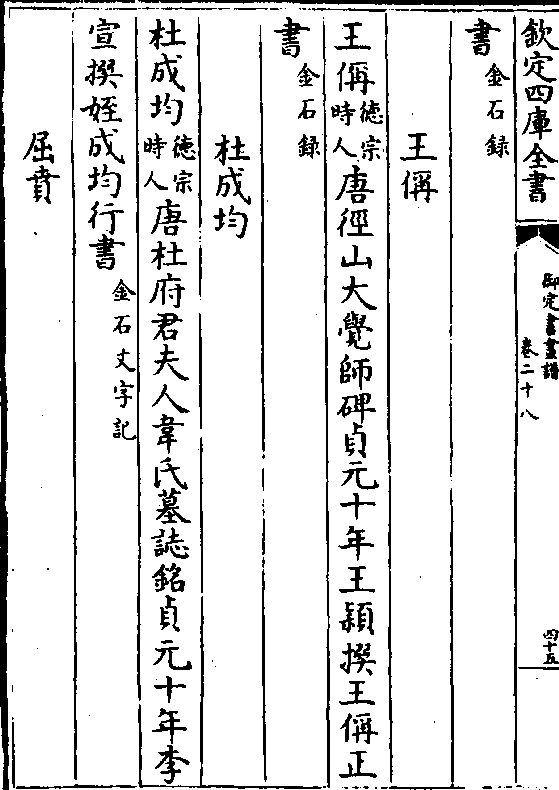 欽定四庫全書
御定書畫譜
卷二十八
四十五
書金石録
王偁
王偁德宗時人唐徑山大覺師碑貞元十年王穎撰王偁正
書金石録
杜成均
杜成均德宗時人唐杜府君夫人韋氏墓誌銘貞元十年李
宣撰姪成均行書金石文字記
屈賁